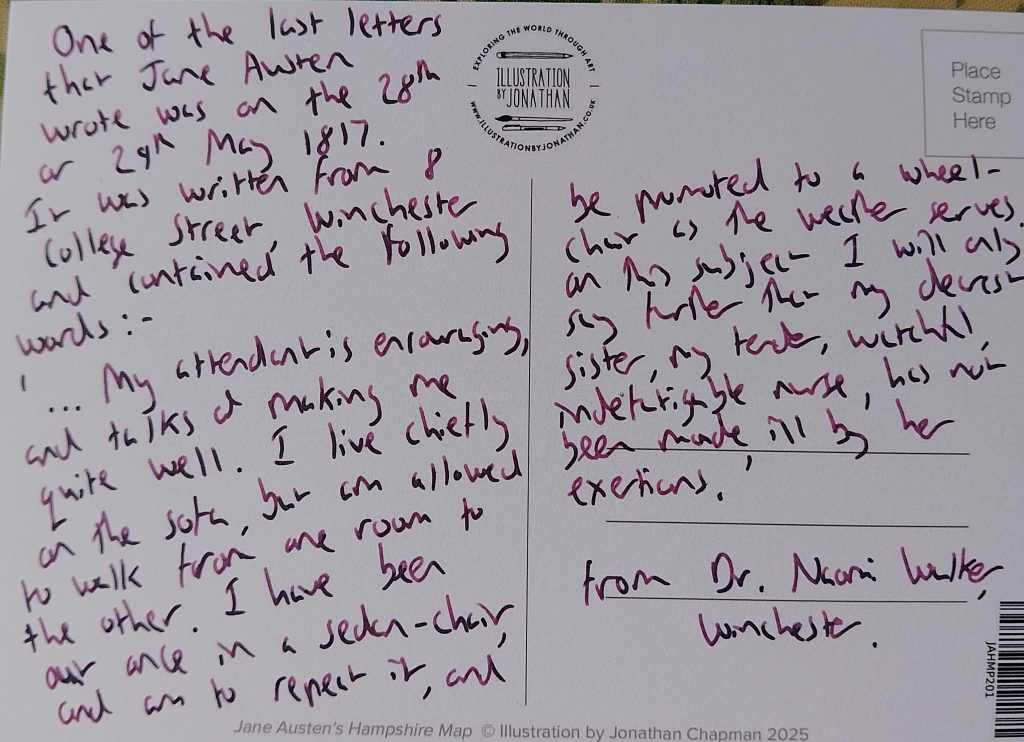 One of the last letters
that Jane Austen
wrote was on the 28th
or 29th May 1817.
It was written from 8
College Street, Winchester
and contained the following
words:-
'... My attendant is encouraging,
and talks of making me
quite well. I live chiefly
on the sofa, but am allowed
to walk from one room to
the other. I have been
out once in a sedan-chair,
and am to repeat it, and
EXPLORING THE WORLD THROUGH ART
ILLUSTRATION
BY JONATHAN
WWW.ILLUSTRATIONBYJONATHAN.CO.UK
Place
Stamp
Here
be promoted to a wheel-
chair as the weather serves.
on this subject I will only
say further that my dearest
sister, my tender, watchful,
indefatigable nurse, has not
been made ill by her
exertions.'
from Dr. Naomi Walker,
Winchester.
JAHMP201
Jane Austen's Hampshire Map © Illustration by Jonathan Chapman 2025